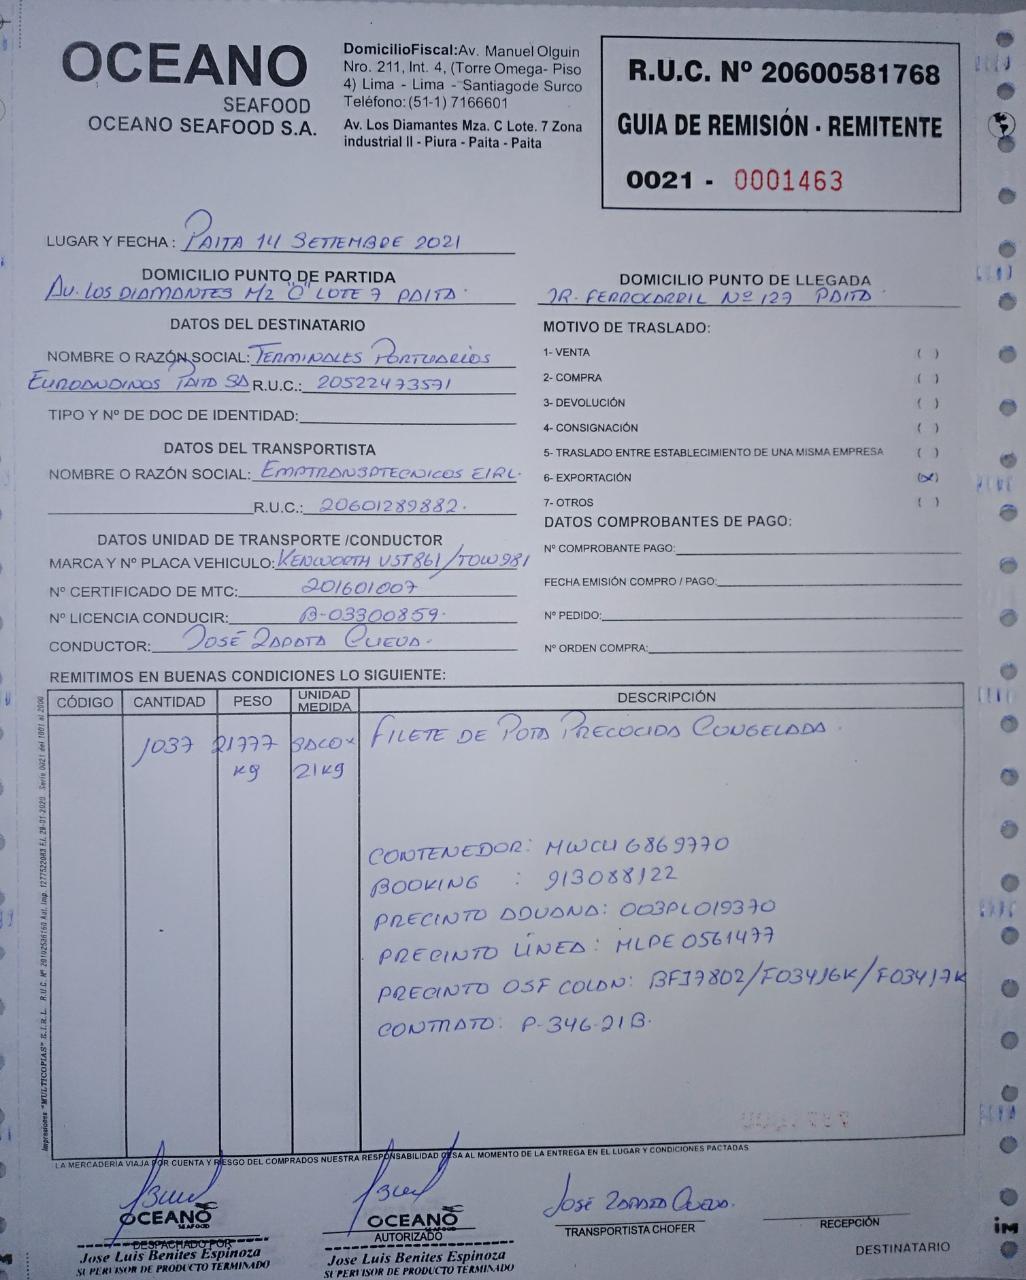 OCEANO
SEAFOOD
OCEANO SEAFOOD S.A.
DomicilioFiscal:Av. Manuel Olguin
Nro. 211, Int. 4, (Torre Omega- Piso
4) Lima - Lima - Santiagode Surco
Teléfono:(51-1) 7166601
Av. Los Diamantes Mza. C Lote. 7 Zona
industrial II - Piura - Paita - Paita
R.U.C. Nº 20600581768
GUIA DE REMISIÓN - REMITENTE
0021 - 0001463
LUGAR Y FECHA : PAITA 14 SETIEMBRE 2021
DOMICILIO PUNTO DE PARTIDA
AV. LOS DIAMANTES MZ "C" LOTE 7 PAITA.
DOMICILIO PUNTO DE LLEGADA
JR. FERROCARRIL Nº 127 PAITA
DATOS DEL DESTINATARIO
NOMBRE O RAZÓN SOCIAL: TERMINALES PORTUARIOS
EUROANDINOS PAITA SA R.U.C.: 20522473571
TIPO Y Nº DE DOC DE IDENTIDAD:
DATOS DEL TRANSPORTISTA
NOMBRE O RAZÓN SOCIAL: EMPTRANSPTECNICOS EIRL.
R.U.C.: 20601289882.
DATOS UNIDAD DE TRANSPORTE /CONDUCTOR
MARCA Y Nº PLACA VEHICULO: KENWORTH V5T861/TOW981
Nº CERTIFICADO DE MTC: 201601007
Nº LICENCIA CONDUCIR: B-03300859.
CONDUCTOR: JOSÉ ZAPATA CUEVA.
MOTIVO DE TRASLADO:
1- VENTA ( )
2- COMPRA ( )
3- DEVOLUCIÓN ( )
4- CONSIGNACIÓN ( )
5- TRASLADO ENTRE ESTABLECIMIENTO DE UNA MISMA EMPRESA ( )
6- EXPORTACIÓN (X)
7- OTROS ( )
DATOS COMPROBANTES DE PAGO:
Nº COMPROBANTE PAGO:
FECHA EMISIÓN COMPRO / PAGO:
Nº PEDIDO:
Nº ORDEN COMPRA:
REMITIMOS EN BUENAS CONDICIONES LO SIGUIENTE:
CÓDIGO CANTIDAD PESO UNIDAD MEDIDA DESCRIPCIÓN
1037 21777 SACO x FILETE DE POTA PRECOCIDA CONGELADA.
KG 21KG
CONTENEDOR: MWCU 6869770
BOOKING : 913088122
PRECINTO ADUANA: 003PL019370
PRECINTO LÍNEA: MLPE 0561477
PRECINTO OSF COLAN: BF17802/F03416K/F03417K
CONTRATO: P-346-21B.
LA MERCADERIA VIAJA POR CUENTA Y RIESGO DEL COMPRADOS NUESTRA RESPONSABILIDAD CESA AL MOMENTO DE LA ENTREGA EN EL LUGAR Y CONDICIONES PACTADAS
OCEANO
SEAFOOD
DESPACHADO POR
Jose Luis Benites Espinoza
SUPERVISOR DE PRODUCTO TERMINADO
OCEANO
SEAFOOD
AUTORIZADO
Jose Luis Benites Espinoza
SUPERVISOR DE PRODUCTO TERMINADO
JOSÉ ZAPATA CUEVA.
TRANSPORTISTA CHOFER
RECEPCIÓN
DESTINATARIO